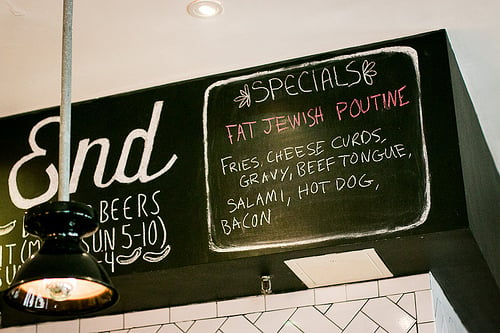 End
BEERS
SUN 5-10)
SPECIALS
FAT JEWISH POUTINE
FRIES, CHEESE CURDS,
GRAVY, BEEF TONGUE,
SALAMI, HOT DOG,
BACON